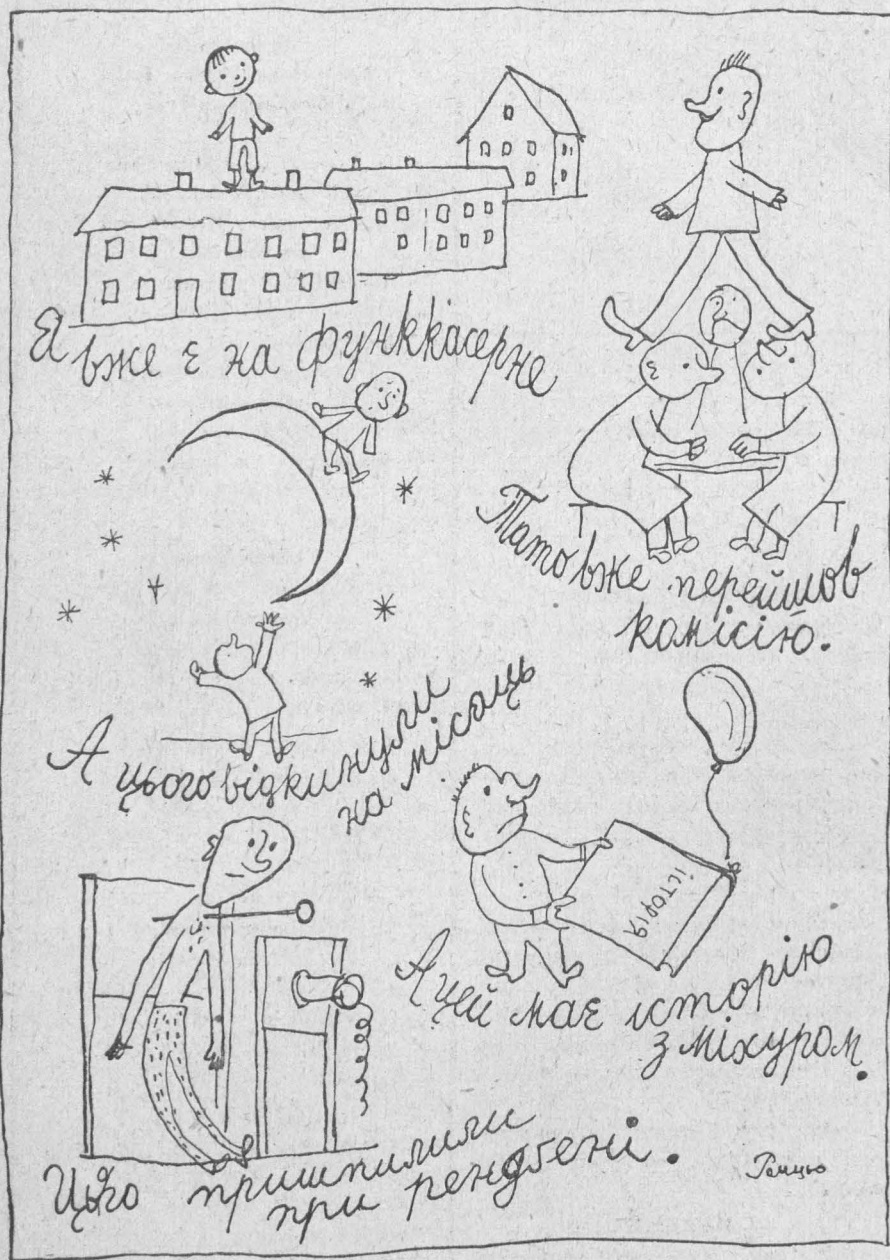 Я вже є на функкасерне
Тато вже перейшов
комісію.
А цього відкинули
на місяць
історія
А цей має історію
з міхуром.
Цього пришпилили
при рендґені.